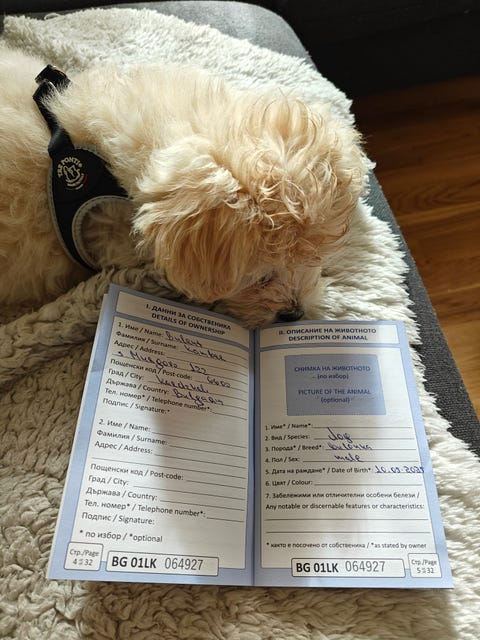 TRE PONTI
I. ДАННИ ЗА СОБСТВЕНИКА
DETAILS OF OWNERSHIP
1. Име / Name:
Фамилия / Surname:
Адрес / Address:
122
Пощенски код / Post-code: 6600
Град / City: Kardzhali
Държава / Country: Bulgaria
Тел. номер* / Telephone number*:
Подпис / Signature:
2. Име / Name:
Фамилия / Surname:
Адрес / Address:
Пощенски код / Post-code:
Град / City:
Държава / Country:
Тел. номер* / Telephone number*:
Подпис / Signature:
* по избор / *optional
Стр./Page
4 из 32
BG 01LK 064927
II. ОПИСАНИЕ НА ЖИВОТНОТО
DESCRIPTION OF ANIMAL
СНИМКА НА ЖИВОТНОТО
(по избор)
PICTURE OF THE ANIMAL
(optional)
1. Име* / Name*:
2. Вид / Species: Dog
3. Порода* / Breed*: Bolonka
4. Пол / Sex: male
5. Дата на раждане* / Date of Birth*:
6. Цвят / Colour:
7. Забележими или отличителни особени белези /
Any notable or discernable features or characteristics:
* както е посочено от собственика / *as stated by owner
Стр./Page
5 из 32
BG 01LK 064927